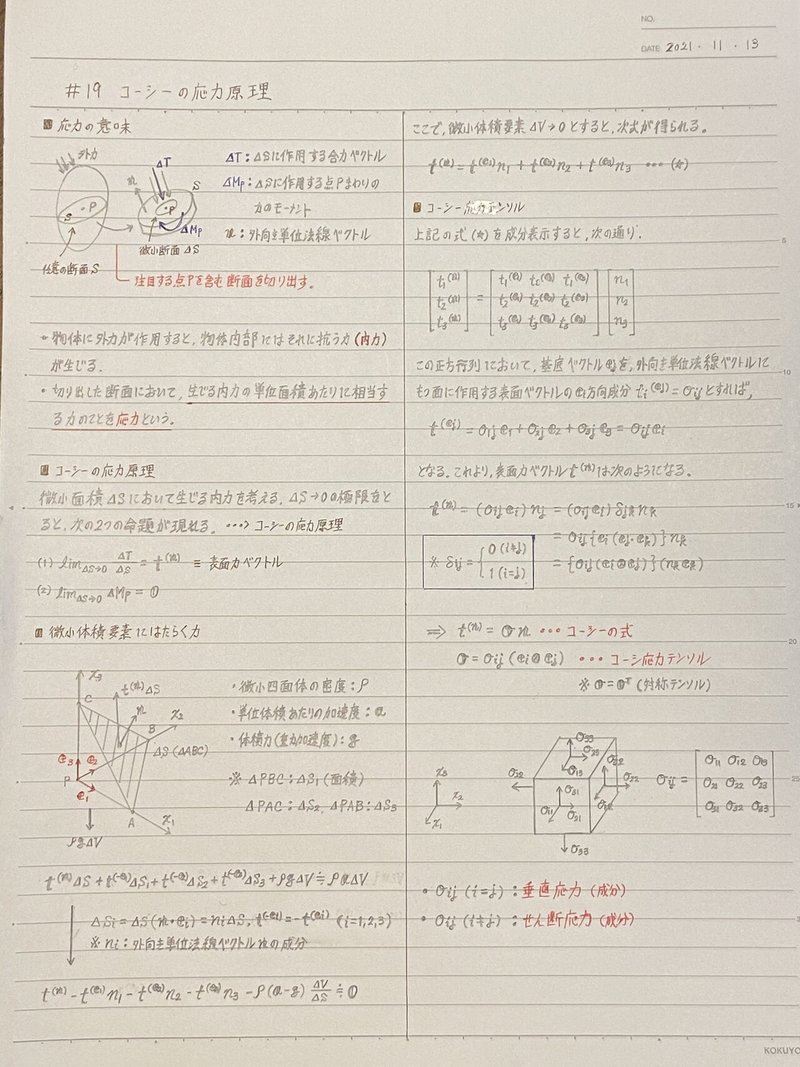 NO.
DATE 2021・11・13
#19 コーシーの応力原理
応力の意味
外力
S
P
任意の断面 S
ΔT
n
S
P
ΔMp
微小断面 ΔS
ΔT：ΔSに作用する合力ベクトル
ΔMp：ΔSに作用する点Pまわりの
力のモーメント
n：外向き単位法線ベクトル
注目する点Pを含む断面を切り出す。
・物体に外力が作用すると，物体内部にはそれに抗う力(内力)
が生じる。
・切り出した断面において，生じる内力の単位面積あたりに相当す
る力のことを応力という。
コーシーの応力原理
微小面積ΔSにおいて生じる内力を考える，ΔS→0の極限をと
ると，次の2つの命題が現れる。…> コーシーの応力原理
(1) lim_{ΔS→0} ΔT/ΔS = t^(n) ≡ 表面力ベクトル
(2) lim_{ΔS→0} ΔMp = 0
微小体積要素にはたらく力
x3
C
t^(n)ΔS
n
B
x2
ΔS(ΔABC)
e3
e2
P
e1
A
x1
ρgΔV
・微小四面体の密度：ρ
・単位体積あたりの加速度：a
・体積力(重力加速度)：g
※ ΔPBC：ΔS1(面積)
ΔPAC：ΔS2, ΔPAB：ΔS3
t^(n)ΔS + t^(-e1)ΔS1 + t^(-e2)ΔS2 + t^(-e3)ΔS3 + ρgΔV ≒ ρaΔV
ΔSi = ΔS(n・ei) = niΔS, t^(-ei) = -t^(ei) (i=1,2,3)
※ ni：外向き単位法線ベクトルnの成分
t^(n) - t^(e1)n1 - t^(e2)n2 - t^(e3)n3 - ρ(a-g) ΔV/ΔS ≒ 0
ここで，微小体積要素ΔV→0とすると，次式が得られる。
t^(n) = t^(e1)n1 + t^(e2)n2 + t^(e3)n3 … (*)
コーシー応力テンソル
上記の式(*)を成分表示すると，次の通り．
[t1^(n)] = [t1^(e1) t1^(e2) t1^(e3)] [n1]
[t2^(n)] [t2^(e1) t2^(e2) t2^(e3)] [n2]
[t3^(n)] [t3^(e1) t3^(e2) t3^(e3)] [n3]
この正方行列において，基底ベクトルejを，外向き単位法線ベクトルに
もつ面に作用する表面ベクトルのei方向成分 ti^(ej) = σijとすれば，
t^(ej) = σ1j e1 + σ2j e2 + σ3j e3 = σij ei
となる。これより，表面力ベクトルt^(n)は次のようになる。
t^(n) = (σij ei) nj = (σij ei) δjk nk
= σij{ei(ej・ek)}nk
= {σij(ei⊗ej)}(nk ek)
※ δij = { 0 (i≠j)
1 (i=j)
⇒ t^(n) = σn … コーシーの式
σ = σij (ei⊗ej) … コーシ応力テンソル
※ σ = σ^T (対称テンソル)
x3
x2
x1
σ33
σ23
σ13
σ22
σ32
σ31
σ11
σ21
σ12
σ22
σ33
σij = [σ11 σ12 σ13]
[σ21 σ22 σ23]
[σ31 σ32 σ33]
・σij (i=j)：垂直応力(成分)
・σij (i≠j)：せん断応力(成分)
5
10
15
20
25
KOKUYO